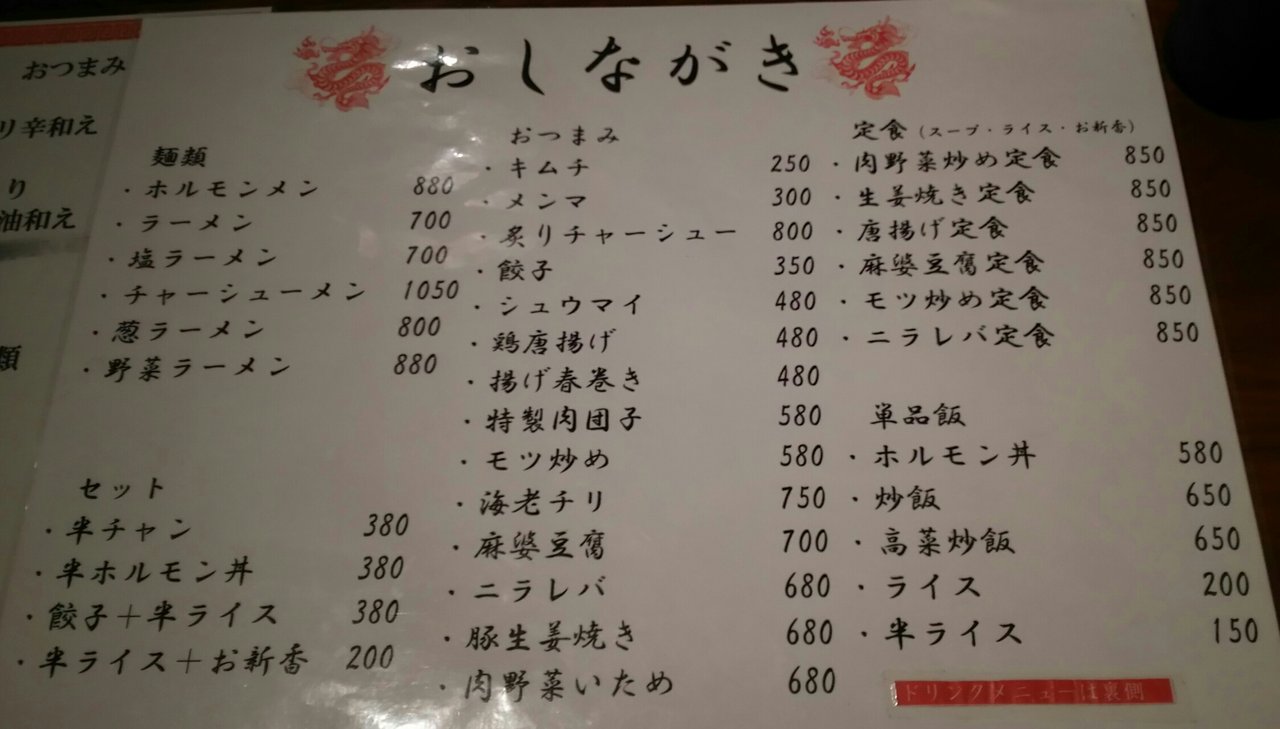 おつまみ
リ辛和え
り
油和え
類
おしながき
麺類
・ホルモンメン 880
・ラーメン 700
・塩ラーメン 700
・チャーシューメン 1050
・葱ラーメン 800
・野菜ラーメン 880
セット
・半チャン 380
・半ホルモン丼 380
・餃子＋半ライス 380
・半ライス＋お新香 200
おつまみ
・キムチ 250
・メンマ 300
・炙りチャーシュー 800
・餃子 350
・シュウマイ 480
・鶏唐揚げ 480
・揚げ春巻き 480
・特製肉団子 580
・モツ炒め 580
・海老チリ 750
・麻婆豆腐 700
・ニラレバ 680
・豚生姜焼き 680
・肉野菜いため 680
定食（スープ・ライス・お新香）
・肉野菜炒め定食 850
・生姜焼き定食 850
・唐揚げ定食 850
・麻婆豆腐定食 850
・モツ炒め定食 850
・ニラレバ定食 850
単品飯
・ホルモン丼 580
・炒飯 650
・高菜炒飯 650
・ライス 200
・半ライス 150
ドリンクメニューは裏側